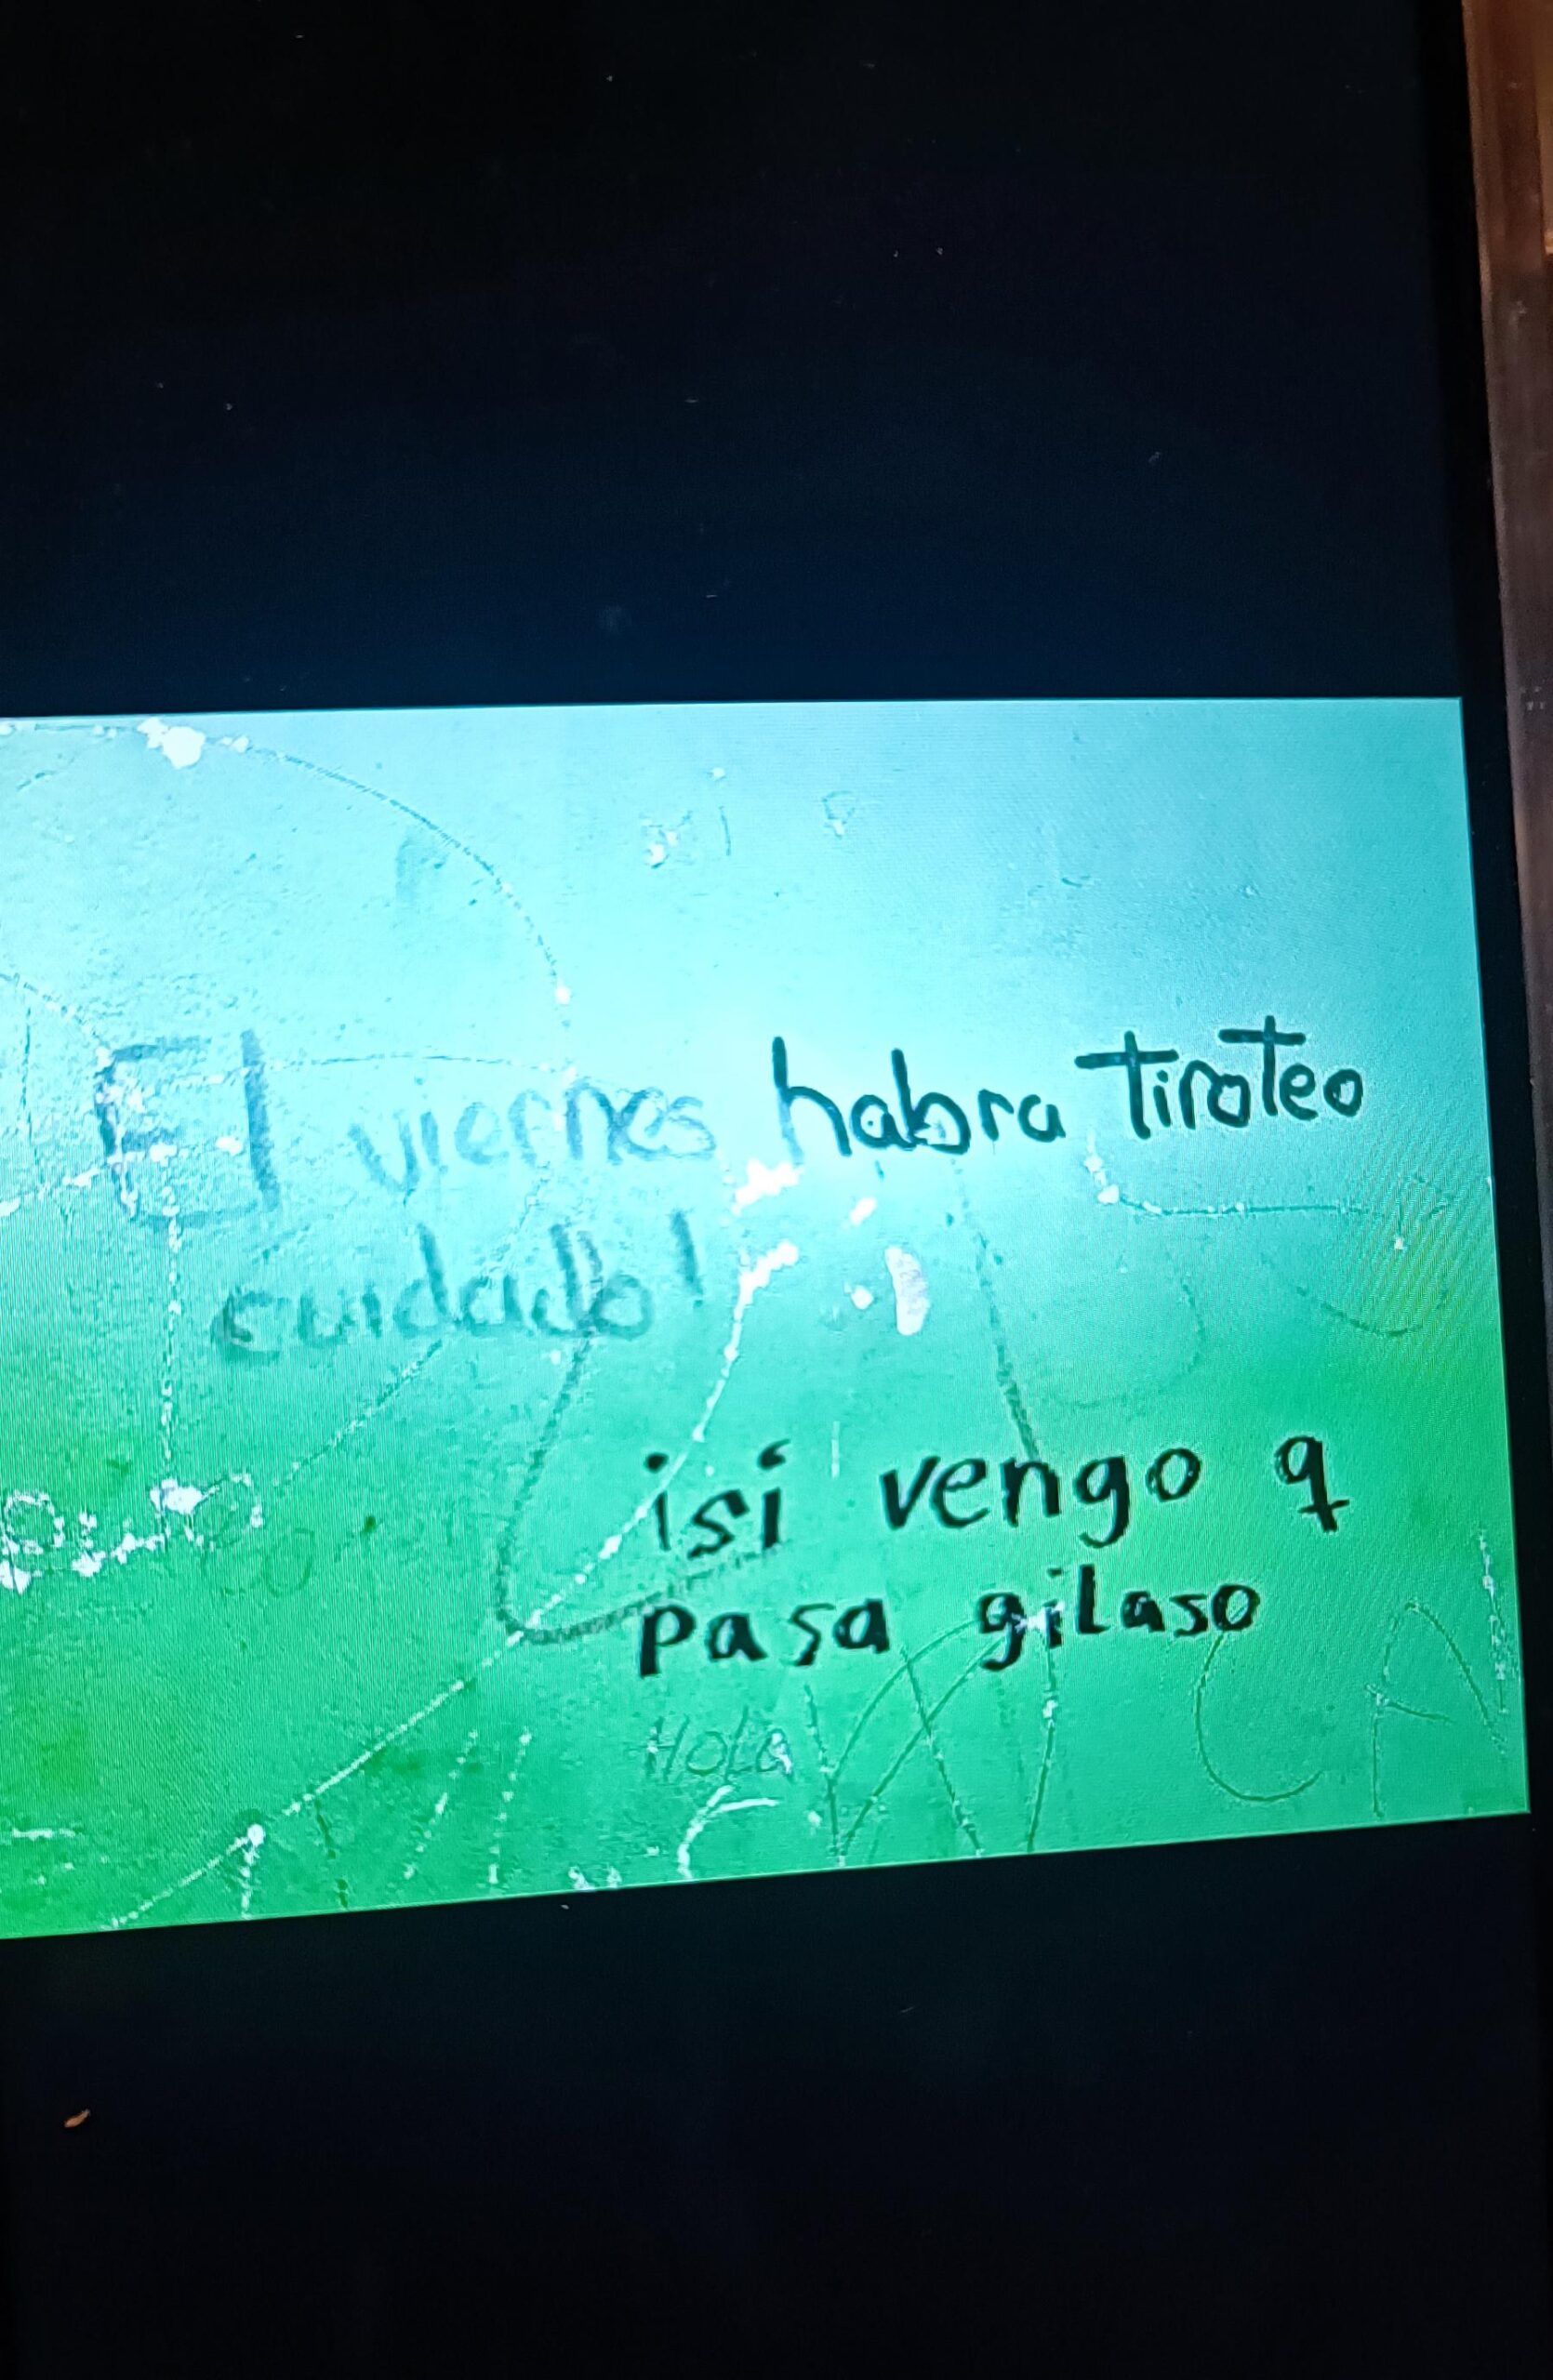 El viernes habra tiroteo
cuidado!
isi vengo q
pasa gilaso
Hola